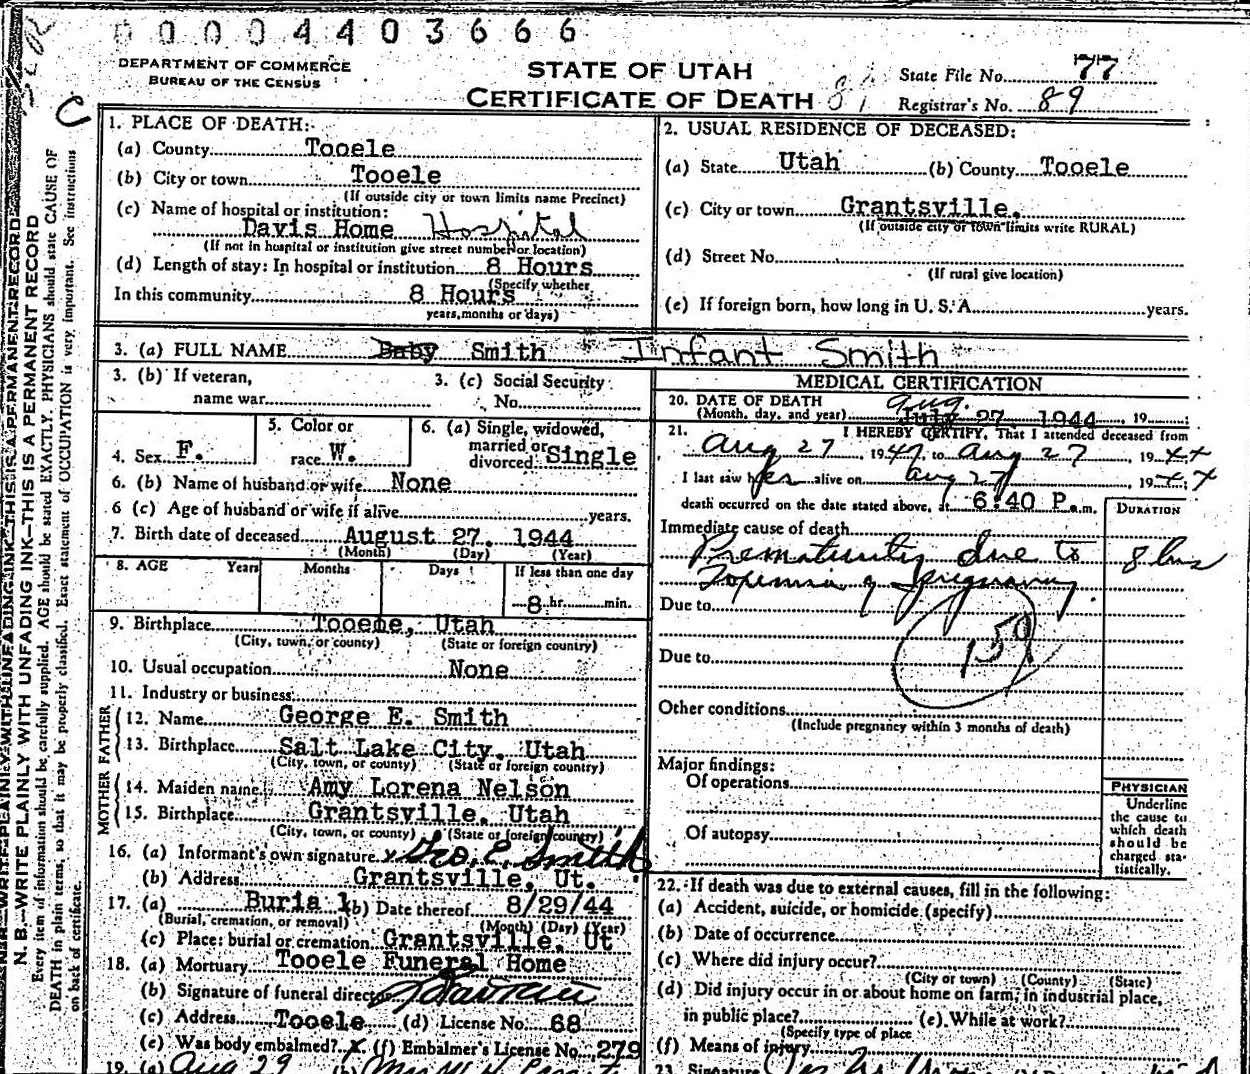 00004403666
DEPARTMENT OF COMMERCE
BUREAU OF THE CENSUS
STATE OF UTAH
CERTIFICATE OF DEATH
State File No. 77
Registrar's No. 89
C
N. B.—WRITE PLAINLY WITH UNFADING INK—THIS IS A PERMANENT RECORD
Every item of information should be carefully supplied. AGE should be stated EXACTLY. PHYSICIANS should state CAUSE OF
DEATH in plain terms, so that it may be properly classified. Exact statement of OCCUPATION is very important. See instructions
on back of certificate.
1. PLACE OF DEATH:
(a) County Tooele
(b) City or town Tooele
(If outside city or town limits name Precinct)
(c) Name of hospital or institution:
Davis Home Hospital
(If not in hospital or institution give street number or location)
(d) Length of stay: In hospital or institution 8 Hours
(Specify whether
In this community 8 Hours
years, months or days)
2. USUAL RESIDENCE OF DECEASED:
(a) State Utah (b) County Tooele
(c) City or town Grantsville.
(If outside city or town limits write RURAL)
(d) Street No.
(If rural give location)
(e) If foreign born, how long in U. S. A. years.
3. (a) FULL NAME Baby Smith Infant Smith
3. (b) If veteran, 3. (c) Social Security
name war No.
4. Sex F.
5. Color or
race W.
6. (a) Single, widowed,
married or
divorced Single
6. (b) Name of husband or wife None
6 (c) Age of husband or wife if alive years.
7. Birth date of deceased August 27, 1944
(Month) (Day) (Year)
8. AGE Years Months Days If less than one day
8 hr. min.
9. Birthplace Tooele, Utah
(City, town, or county) (State or foreign country)
10. Usual occupation None
11. Industry or business
FATHER
12. Name George E. Smith
13. Birthplace Salt Lake City, Utah
(City, town, or county) (State or foreign country)
MOTHER
14. Maiden name Amy Lorena Nelson
15. Birthplace Grantsville, Utah
(City, town, or county) (State or foreign country)
16. (a) Informant's own signature x Geo. E. Smith
(b) Address Grantsville, Ut.
17. (a) Burial (b) Date thereof 8/29/44
(Burial, cremation, or removal) (Month) (Day) (Year)
(c) Place: burial or cremation Grantsville, Ut
18. (a) Mortuary Tooele Funeral Home
(b) Signature of funeral director
(c) Address Tooele (d) License No. 68
(e) Was body embalmed? x (f) Embalmer's License No. 279
19. (a) Aug 29
MEDICAL CERTIFICATION
20. DATE OF DEATH Aug.
(Month, day, and year) July 27 1944, 19
21. I HEREBY CERTIFY, That I attended deceased from
Aug 27, 1944, to Aug 27, 1944
I last saw her alive on Aug 27, 1944
death occurred on the date stated above, at 6:40 P.m.
DURATION
Immediate cause of death
Prematurity due to 8 hrs
Toxemia of pregnancy.
Due to
150
Due to
Other conditions
(Include pregnancy within 3 months of death)
Major findings:
Of operations
Of autopsy
PHYSICIAN
Underline
the cause to
which death
should be
charged sta-
tistically.
22. If death was due to external causes, fill in the following:
(a) Accident, suicide, or homicide (specify)
(b) Date of occurrence
(c) Where did injury occur?
(City or town) (County) (State)
(d) Did injury occur in or about home on farm, in industrial place,
in public place? (e) While at work?
(Specify type of place
(f) Means of injury
23. Signature